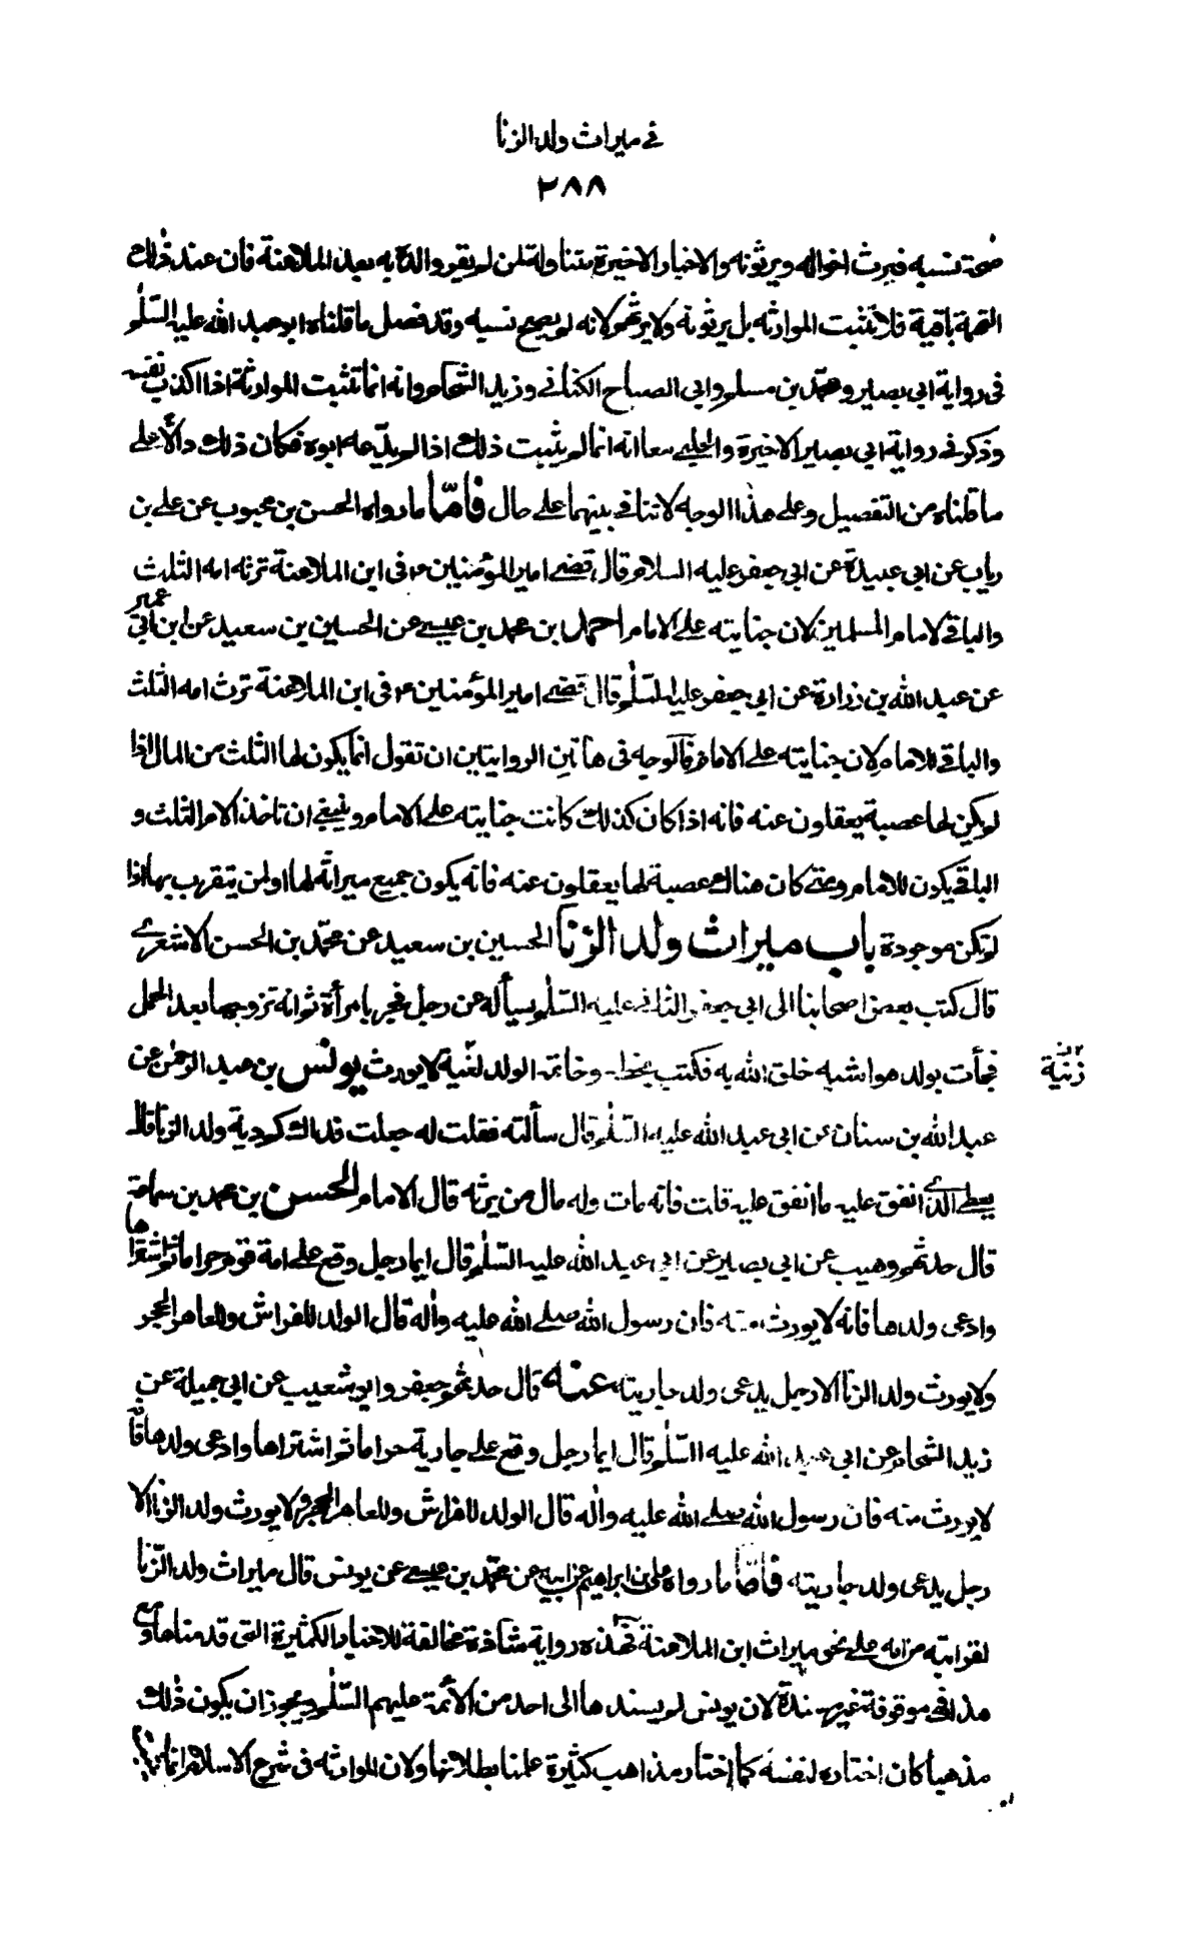 في ميراث ولد الزنا
٢٨٨
صحة نسبه فيرث اخواله ويرثونه والاخبار الاخيرة متناولة لمن لم يقر والده به بعد الملاعنة فان عند ذلك
التهمة باقية فلا تثبت الموارثة بل يرثونه ولا يرثهم لانه لم يصح نسبه وقد فصل ما قلناه ابو عبد الله عليه السلم
في رواية ابي بصير ومحمد بن مسلم وابي الصباح الكناني وزيد الشحام وانه انما تثبت الموارثة اذا اكذب نفسه
وذكر في رواية ابي بصير الاخيرة والحلبي معا انه انما لم يثبت ذلك اذا لم يدعه ابوه فكان ذلك دالا على
ما قلناه من التفصيل وعلى هذا الوجه لا تنافي بينهما على حال فاما ما رواه الحسن بن محبوب عن علي بن
رياب عن ابي عبيدة عن ابي جعفر عليه السلام قال قضى امير المؤمنين ع في ابن الملاعنة ترثه امه الثلث
والباقي لامام المسلمين لان جنايته على الامام احمد بن محمد بن عيسى عن الحسين بن سعيد عن ابن ابي عمير
عن عبد الله بن زرارة عن ابي جعفر عليه السلم قال قضى امير المؤمنين ع في ابن الملاعنة ترث امه الثلث
والباقي للامام لان جنايته على الامام فالوجه في هاتين الروايتين ان تقول انما يكون لها الثلث من المال اذا
لم يكن لها عصبة يعقلون عنه فانه اذا كان كذلك كانت جنايته على الامام وينبغي ان تاخذ الام الثلث و
الباقي يكون للامام ومتى كان هناك عصبة لها يعقلون عنه فانه يكون جميع ميراثه لها او لمن يتقرب بها اذا
لم تكن موجودة باب ميراث ولد الزنا الحسين بن سعيد عن محمد بن الحسن الاشعري
قال كتب بعض اصحابنا الى ابي جعفر الثاني عليه السلم يسأله عن رجل فجر بامرأة ثم انه تزوجها بعد الحمل
فجأت بولد هو اشبه خلق الله به فكتب بخطه وخاتمه الولد لغية لا يورث يونس بن عبد الرحمن عن
زنية
عبد الله بن سنان عن ابي عبد الله عليه السلم قال سألته فقلت له جعلت فداك كم دية ولد الزنا قال
يعطى الذي انفق عليه ما انفق عليه قلت فانه مات وله مال من يرثه قال الامام الحسن بن محمد بن سماعة
قال حدثهم وهيب عن ابي بصير عن ابي عبد الله عليه السلم قال ايما رجل وقع على امة قوم حراما ثم اشتراها
وادعى ولدها فانه لا يورث منه فان رسول الله صلى الله عليه واله قال الولد للفراش وللعاهر الحجر
ولا يورث ولد الزنا الا رجل يدعى ولد جاريته عنه قال حدثهم جعفر وابو شعيب عن ابي جميلة عن
زيد الشحام عن ابي عبد الله عليه السلم قال ايما رجل وقع على جارية حراما ثم اشتراها وادعى ولدها فانه
لا يورث منه فان رسول الله صلى الله عليه واله قال الولد للفراش وللعاهر الحجر ولا يورث ولد الزنا الا
رجل يدعى ولد جاريته فاما ما رواه علي بن ابراهيم عن ابيه عن محمد بن عيسى عن يونس قال ميراث ولد الزنا
لقرابته من امه على نحو ميراث ابن الملاعنة فهذه رواية شاذة مخالفة للاخبار الكثيرة التي قدمناها ومع
هذا فهي موقوفة غير مسندة لان يونس لم يسندها الى احد من الأئمة عليهم السلم ويجوز ان يكون ذلك
مذهبا كان اختاره لنفسه كما اختار مذاهب كثيرة علمنا بطلانها ولان الموارثة في شرع الاسلام انما